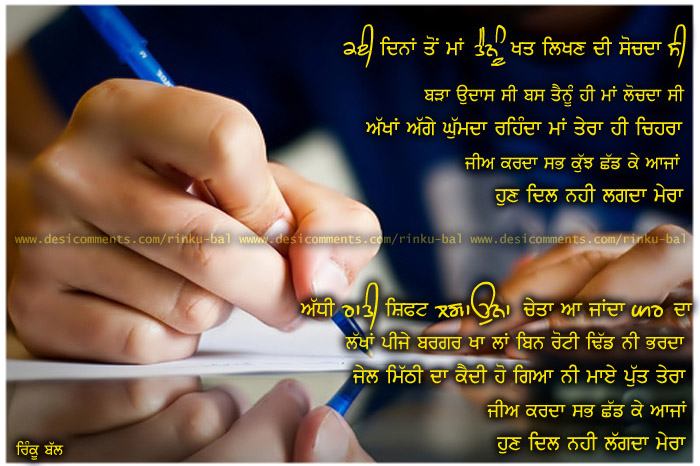 ਕਈ ਦਿਨਾਂ ਤੋਂ ਮਾਂ ਤੈਨੂੰ ਖਤ ਲਿਖਣ ਦੀ ਸੋਚਦਾ ਸੀ
ਬੜਾ ਉਦਾਸ ਸੀ ਬਸ ਤੈਨੂੰ ਹੀ ਮਾਂ ਲੋਚਦਾ ਸੀ
ਅੱਖਾਂ ਅੱਗੇ ਘੁੱਮਦਾ ਰਹਿੰਦਾ ਮਾਂ ਤੇਰਾ ਹੀ ਚਿਹਰਾ
ਜੀਅ ਕਰਦਾ ਸਭ ਕੁੱਝ ਛੱਡ ਕੇ ਆਜਾਂ
ਹੁਣ ਦਿਲ ਨਹੀ ਲਗਦਾ ਮੇਰਾ
www.desicomments.com/rinku-bal www.desicomments.com/rinku-bal www.desicomments.com/rinku-bal
ਅੱਧੀ ਰਾਤੀ ਸ਼ਿਫਟ ਲਗਾਉਨਾ ਚੇਤਾ ਆ ਜਾਂਦਾ ਘਰ ਦਾ
ਲੱਖਾਂ ਪੀਜੇ ਬਰਗਰ ਖਾ ਲਾਂ ਬਿਨ ਰੋਟੀ ਢਿੱਡ ਨੀ ਭਰਦਾ
ਜੇਲ ਮਿੱਠੀ ਦਾ ਕੈਦੀ ਹੋ ਗਿਆ ਨੀ ਮਾਏ ਪੁੱਤ ਤੇਰਾ
ਜੀਅ ਕਰਦਾ ਸਭ ਛੱਡ ਕੇ ਆਜਾਂ
ਹੁਣ ਦਿਲ ਨਹੀ ਲੱਗਦਾ ਮੇਰਾ
ਰਿੰਕੂ ਬੱਲ